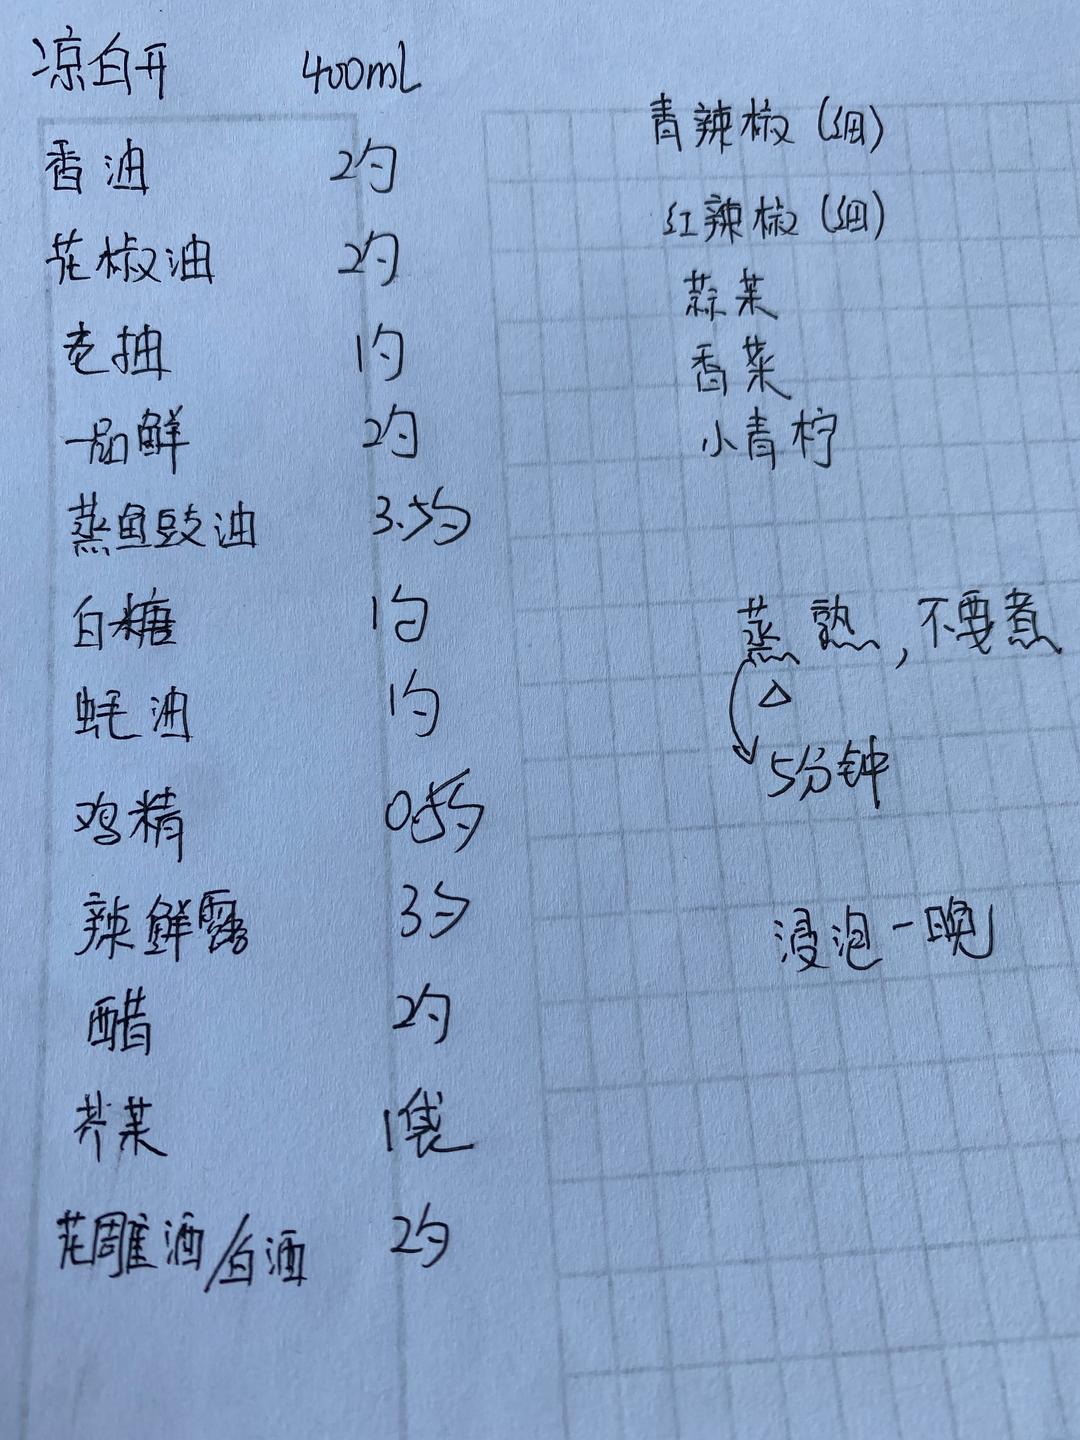 凉白开 400mL
香油 2勺
花椒油 2勺
老抽 1勺
一品鲜 2勺
蒸鱼豉油 3.5勺
白糖 1勺
蚝油 1勺
鸡精 0.5勺
辣鲜露 3勺
醋 2勺
芥茉 1袋
花雕酒/白酒 2勺
青辣椒(细)
红辣椒(细)
蒜茉
香菜
小青柠
蒸熟,不要煮
5分钟
浸泡一晚